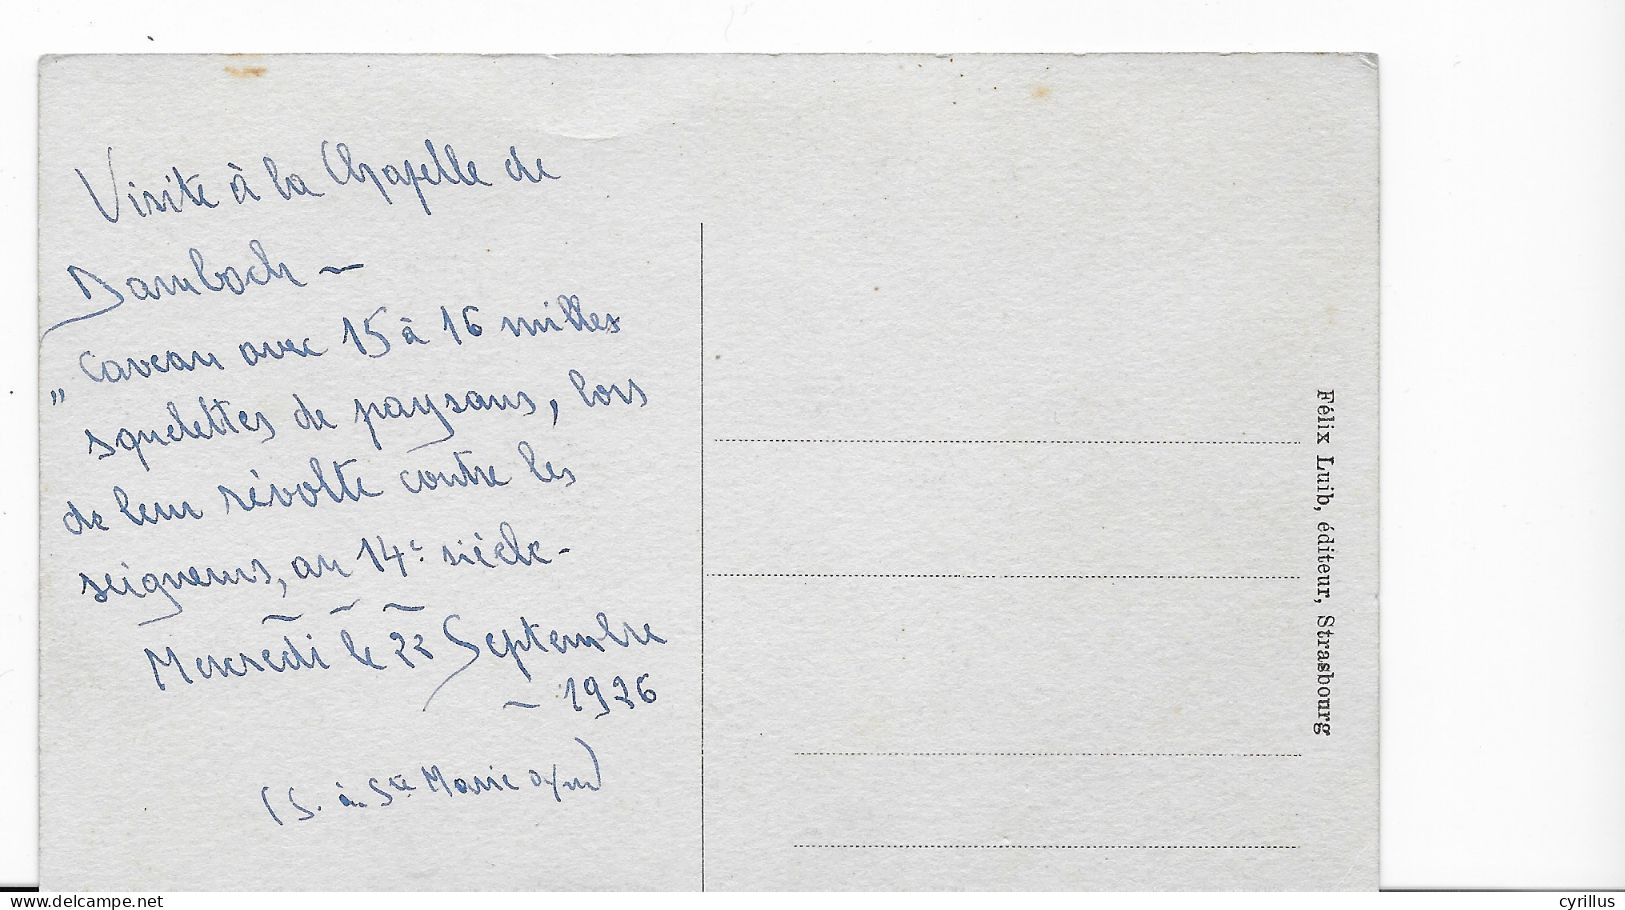 Visite à la Chapelle de
Dambach ~
" Caveau avec 15 à 16 milles
squelettes de paysans, lors
de leur révolte contre les
seigneurs, au 14e siècle -
Mercredi le 22 Septembre
~ 1926
(S. à Ste Marie a/m)
Félix Luib, éditeur, Strasbourg
cyrillus